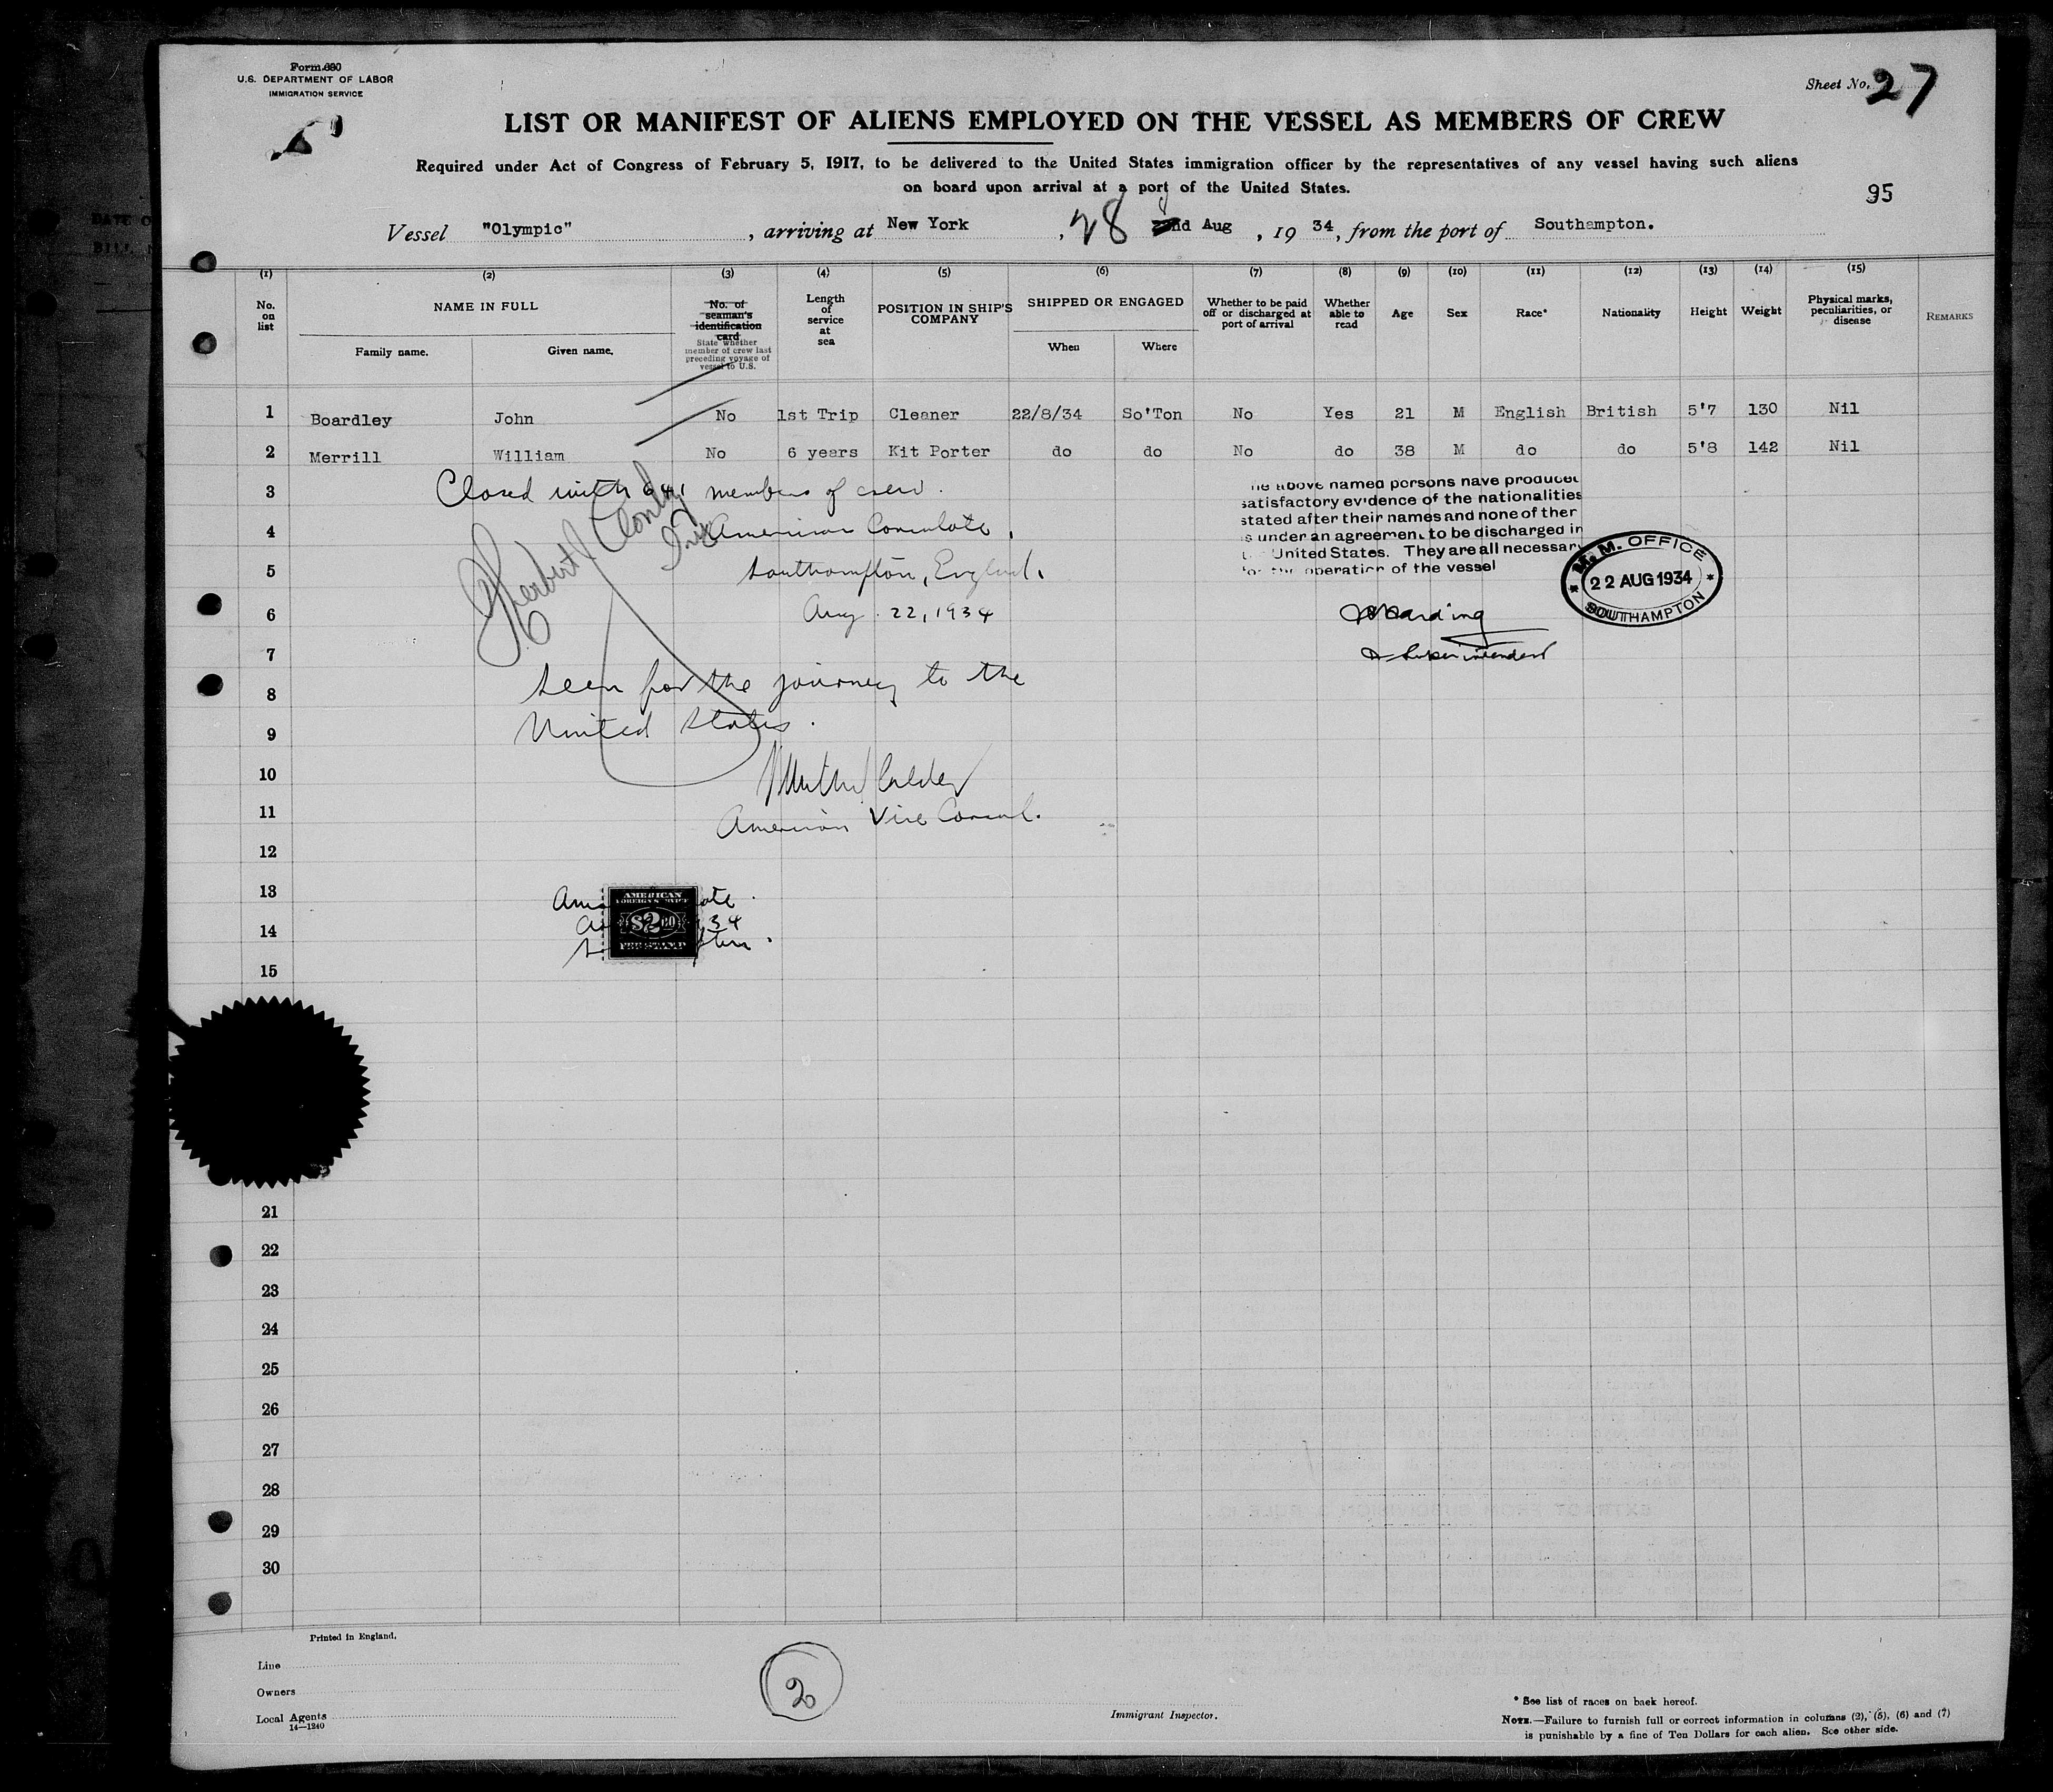 Form 680
U.S. DEPARTMENT OF LABOR
IMMIGRATION SERVICE
Sheet No. 27
LIST OR MANIFEST OF ALIENS EMPLOYED ON THE VESSEL AS MEMBERS OF CREW
Required under Act of Congress of February 5, 1917, to be delivered to the United States immigration officer by the representatives of any vessel having such aliens
on board upon arrival at a port of the United States.
95
Vessel "Olympic", arriving at New York, 28 Aug, 19 34, from the port of Southampton.
(1) (2) (3) (4) (5) (6) (7) (8) (9) (10) (11) (12) (13) (14) (15)
No. on list
NAME IN FULL
Family name. Given name.
No. of seaman's identification card
State whether member of crew last preceding voyage of vessel to U.S.
Length of service at sea
POSITION IN SHIP'S COMPANY
SHIPPED OR ENGAGED
When Where
Whether to be paid off or discharged at port of arrival
Whether able to read
Age
Sex
Race*
Nationality
Height
Weight
Physical marks, peculiarities, or disease
REMARKS
1 Boardley John No 1st Trip Cleaner 22/8/34 So'Ton No Yes 21 M English British 5'7 130 Nil
2 Merrill William No 6 years Kit Porter do do No do 38 M do do 5'8 142 Nil
3
Closed with 641 members of crew.
4
American Consulate,
5
Southampton, England.
6
Aug. 22, 1934
7
8
Seen for the journey to the
9
United States.
10
11
American Vice Consul.
above named persons have produced
satisfactory evidence of the nationalities
stated after their names and none of them
is under an agreement to be discharged in
United States. They are all necessary
operation of the vessel
Harding
Superintendent
M. M. OFFICE
22 AUG 1934
SOUTHAMPTON
12
13
14
AMERICAN
FOREIGN SERVICE
$2.00
FEE STAMP
15
21
22
23
24
25
26
27
28
29
30
Printed in England.
Line
Owners
Local Agents
14—1240
2
Immigrant Inspector.
* See list of races on back hereof.
NOTE.—Failure to furnish full or correct information in columns (2), (5), (6) and (7)
is punishable by a fine of Ten Dollars for each alien. See other side.